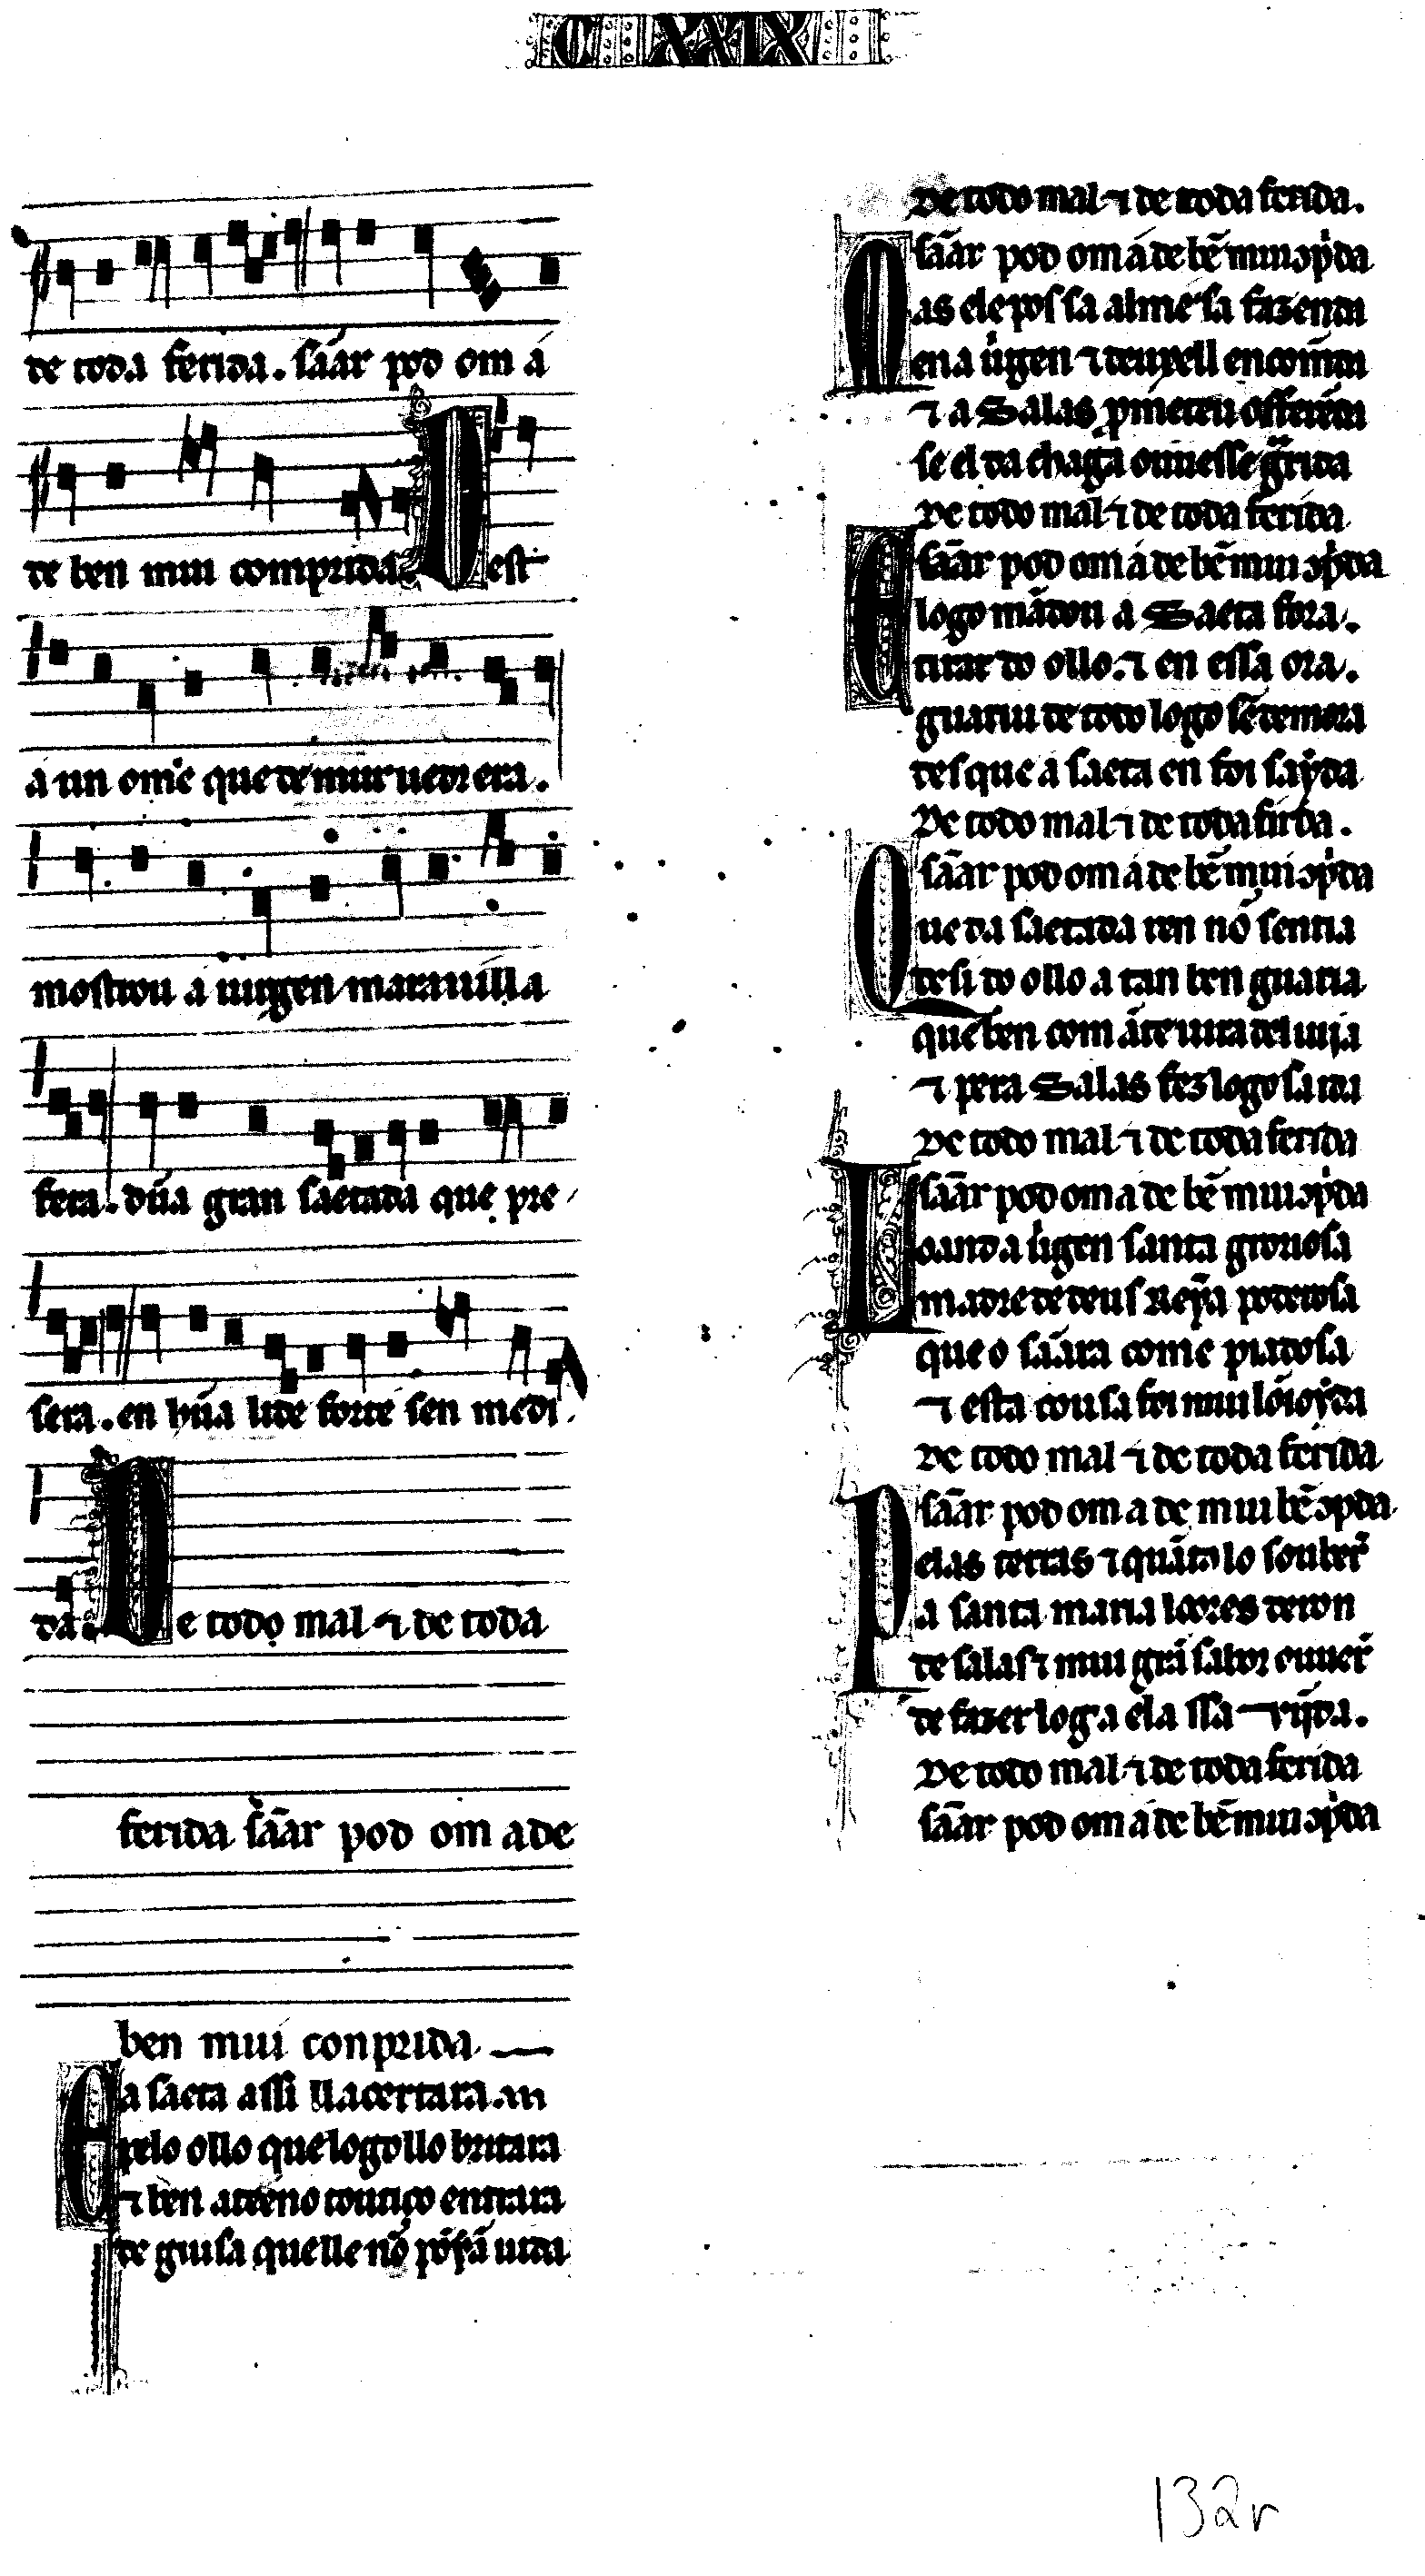 C XXIX
de toda ferida. sãar pod om á
de ben mui comprida. Dest
á un ome que de mur uedr era.
mostrou a uirgen marauilla
fera. dũa gran saetada que pre
sera. en hũa lide forte sen medi
da De todo mal ⁊ de toda
ferida sãar pod om a de
ben mui conprida
Ea saeta assi ll acertara
pelo ollo que logo llo britara
⁊ ben atẽeno toutiço entrara
de guisa que lle nõ
De todo mal ⁊ de toda ferida.
sãar pod om á de bẽ mui ↄp̃da
Mas ele pos sa alme sa fazenda
en a uirgen ⁊ teuess ell en comẽda
⁊ a Salas p̱meteu offerẽda
se el da chaga ouuesse g̃rida
De todo mal ⁊ de toda ferida
sãar pod om á de bẽ mui ↄp̃da
E logo mãdou a Saeta fora.
tirar do ollo. ⁊ en essa ora.
guariu de todo logo sẽ demora
des que a saeta en foi saỹda
De todo mal ⁊ de toda firida.
sãar pod om á de bẽ mui ↄp̃da
Que da saetada ren nõ sentia
desi do ollo a tan ben guaria
que ben com ãte uira del uija
⁊ pera Salas fez logo sa ida
De todo mal ⁊ de toda ferida
sãar pod om a de bẽ mui ↄp̃da
Loand a uirgen santa groriosa
madre de deus Reỹa poderosa
que o sãara come piadosa
⁊ esta cousa foi mui lõi oỹda
De todo mal ⁊ de toda ferida
sãar pod om a de mui bẽ ↄpda
Pelas terras ⁊ quãto lo souber̃
a santa maria loores deron
de salas ⁊ mui grã sabor ouuer̃
de fazer log a ela ssa rijda.
De todo mal ⁊ de toda ferida
sãar pod om á de bẽ mui ↄp̃da
132r